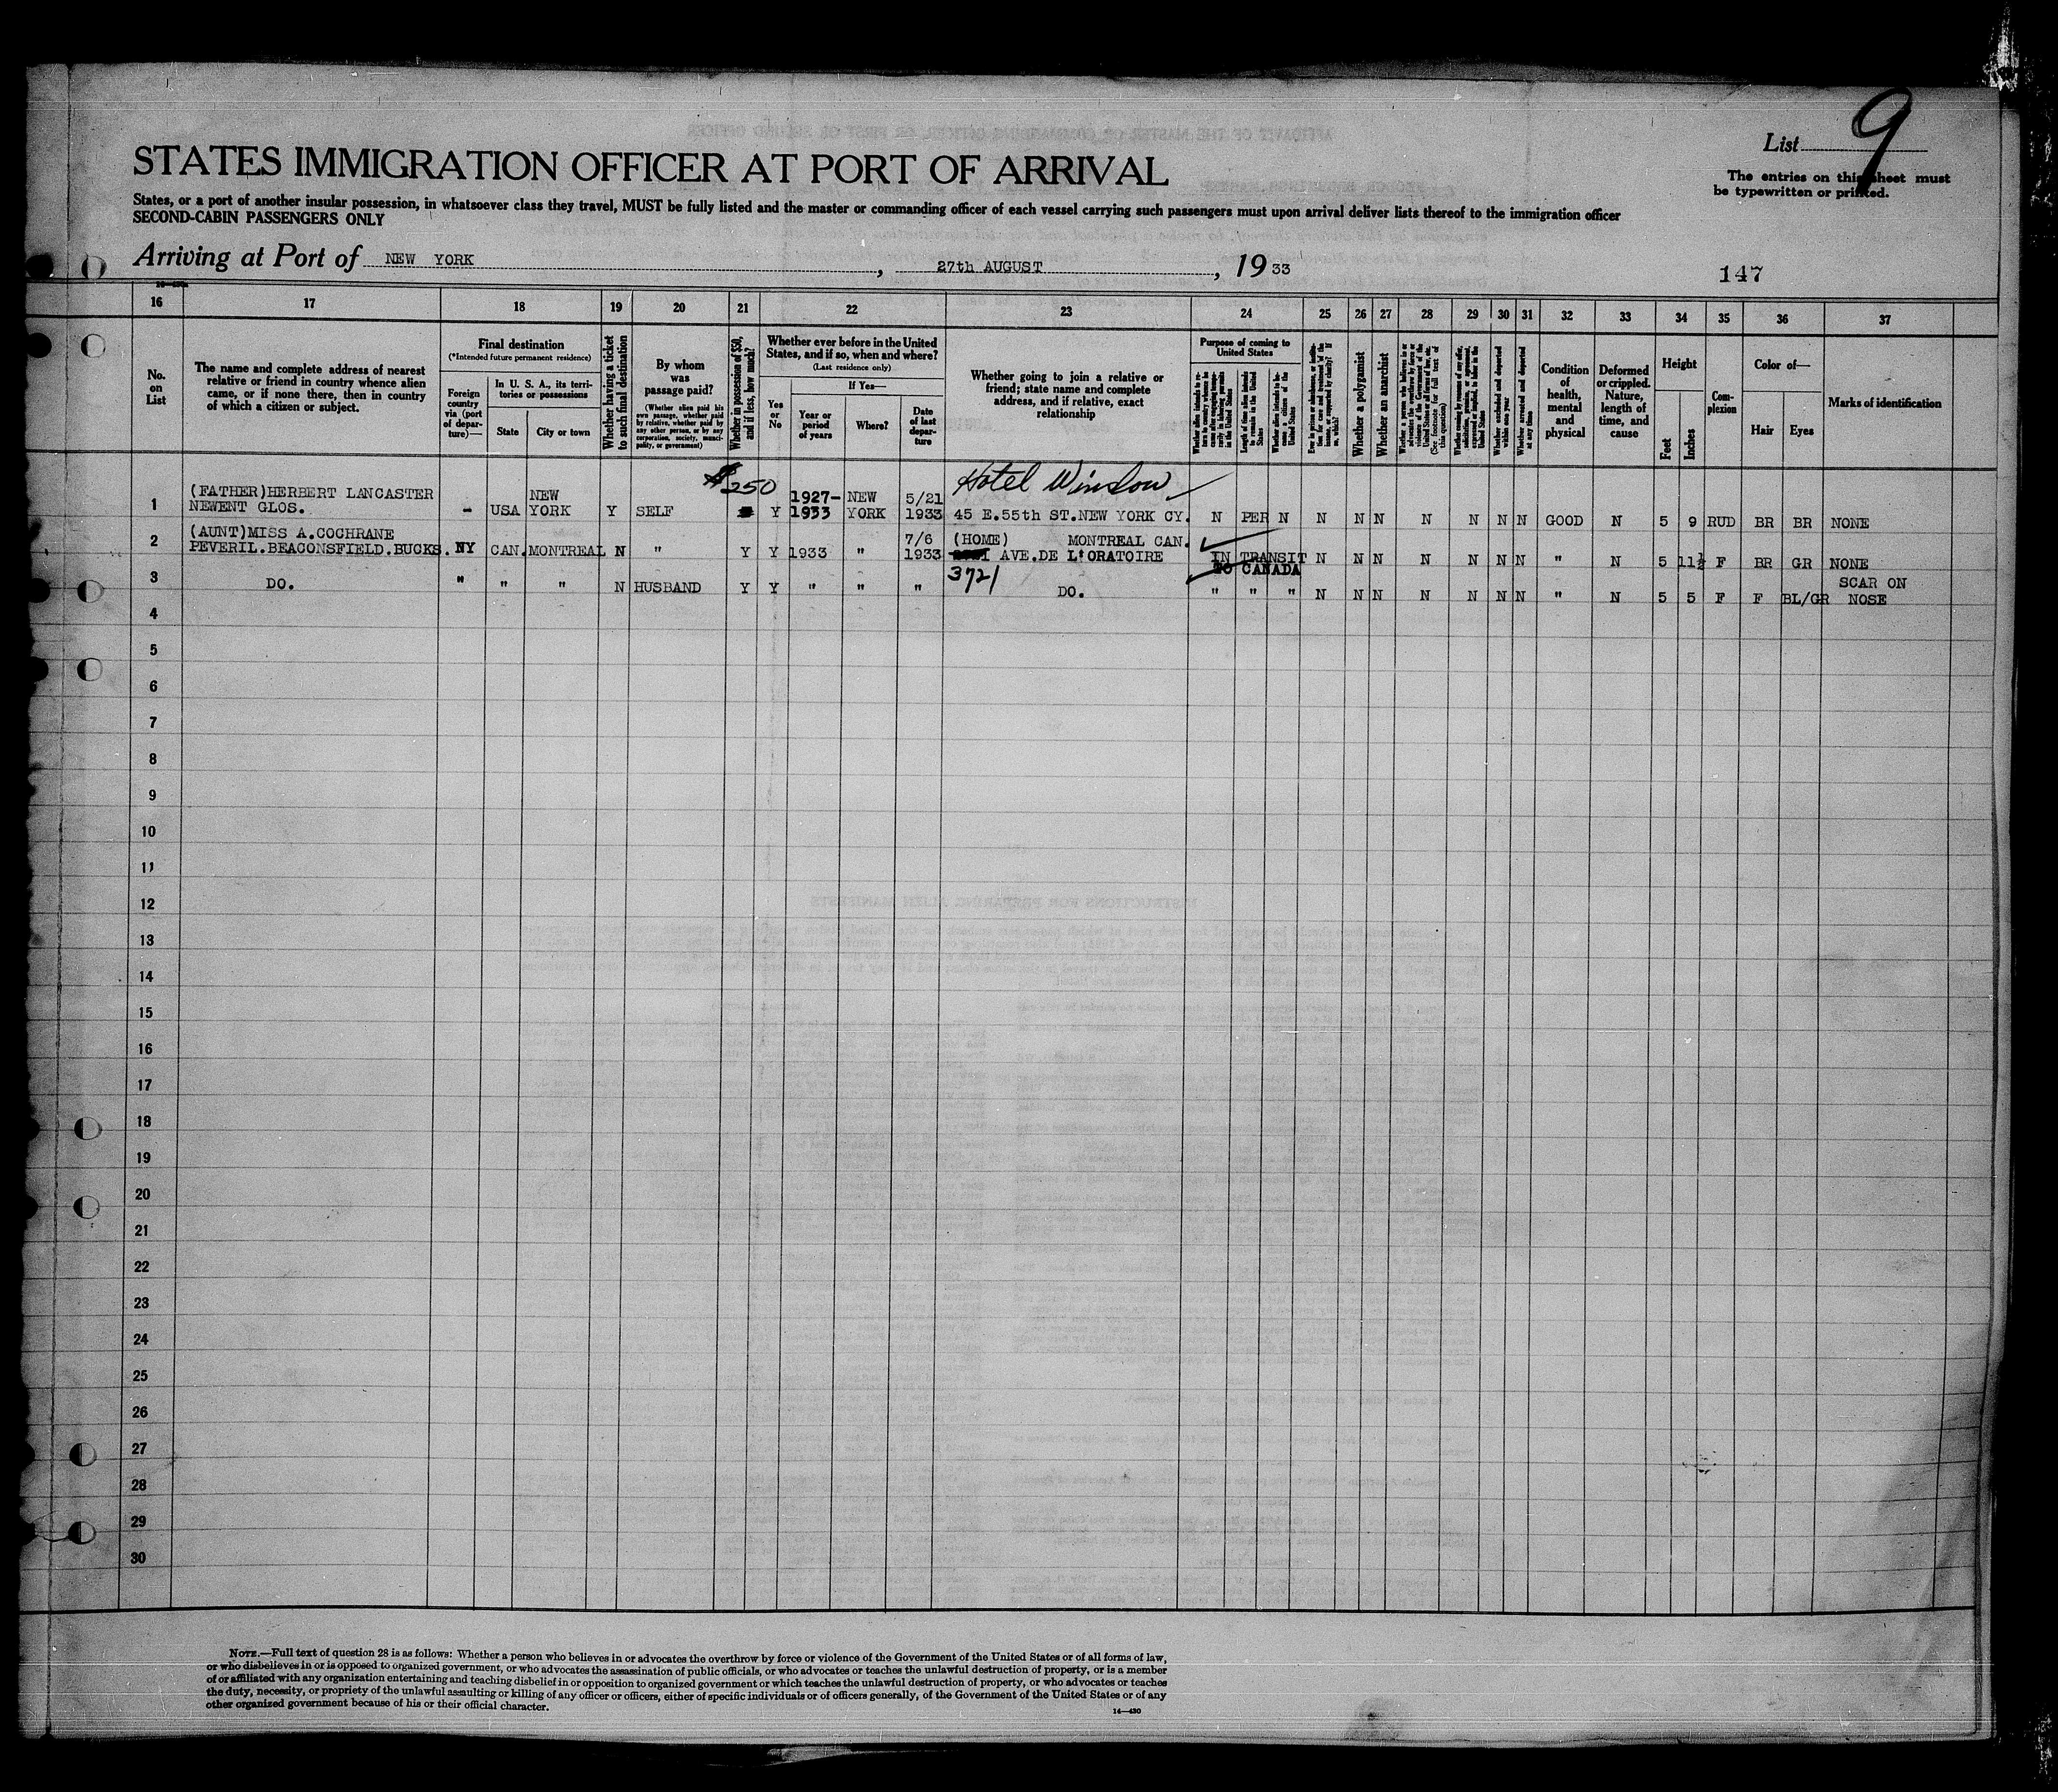 List 9
The entries on this sheet must
be typewritten or printed.
STATES IMMIGRATION OFFICER AT PORT OF ARRIVAL
States, or a port of another insular possession, in whatsoever class they travel, MUST be fully listed and the master or commanding officer of each vessel carrying such passengers must upon arrival deliver lists thereof to the immigration officer
SECOND-CABIN PASSENGERS ONLY
Arriving at Port of NEW YORK, 27th AUGUST, 1933
147
16 17 18 19 20 21 22 23 24 25 26 27 28 29 30 31 32 33 34 35 36 37
No. on List
The name and complete address of nearest
relative or friend in country whence alien
came, or if none there, then in country
of which a citizen or subject.
Final destination
(*Intended future permanent residence)
Foreign country via (port of departure)—
In U. S. A., its territories or possessions
State
City or town
Whether having a ticket to such final destination
By whom was passage paid?
(Whether alien paid his own passage, whether paid by relative, whether paid by any other person, or by any corporation, society, municipality, or government)
Whether in possession of $50, and if less, how much?
Whether ever before in the United States, and if so, when and where?
(Last residence only)
Yes or No
If Yes—
Year or period of years
Where?
Date of last departure
Whether going to join a relative or
friend; state name and complete
address, and if relative, exact
relationship
Purpose of coming to United States
Length of time alien intends to remain in the United States
Whether alien intends to become a citizen of the United States
Whether a polygamist
Whether an anarchist
Whether excluded and deported within one year
Whether arrested and deported at any time
Condition of health, mental and physical
Deformed or crippled. Nature, length of time, and cause
Height
Feet
Inches
Complexion
Color of—
Hair
Eyes
Marks of identification
$250 Hotel Winslow
1 (FATHER)HERBERT LANCASTER NEWENT GLOS. - USA NEW YORK Y SELF Y 1927-1933 NEW YORK 5/21 1933 45 E.55th ST.NEW YORK CY. N PER N N N N N N N N GOOD N 5 9 RUD BR BR NONE
2 (AUNT)MISS A.COCHRANE PEVERIL.BEACONSFIELD.BUCKS. NY CAN. MONTREAL N " Y Y 1933 " 7/6 1933 (HOME) MONTREAL CAN. 3721 AVE.DE L'ORATOIRE IN TRANSIT TO CANADA N N N N N N N " N 5 11½ F BR GR NONE
3 DO. " " " N HUSBAND Y Y " " " DO. " " " N N N N N N N " N 5 5 F F BL/GR SCAR ON NOSE
4
5
6
7
8
9
10
11
12
13
14
15
16
17
18
19
20
21
22
23
24
25
26
27
28
29
30
NOTE.—Full text of question 28 is as follows: Whether a person who believes in or advocates the overthrow by force or violence of the Government of the United States or of all forms of law,
or who disbelieves in or is opposed to organized government, or who advocates the assassination of public officials, or who advocates or teaches the unlawful destruction of property, or is a member
of or affiliated with any organization entertaining and teaching disbelief in or opposition to organized government or which teaches the unlawful destruction of property, or who advocates or teaches
the duty, necessity, or propriety of the unlawful assaulting or killing of any officer or officers, either of specific individuals or of officers generally, of the Government of the United States or of any
other organized government because of his or their official character.
14—430